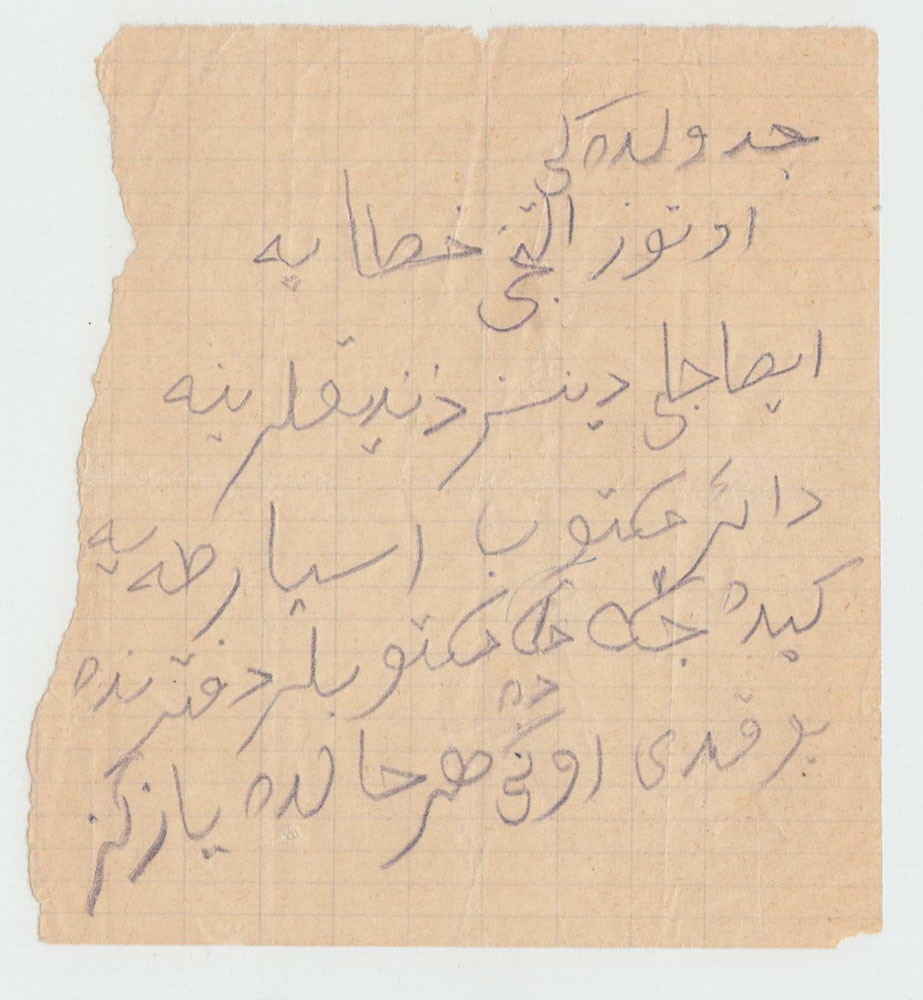 جدولده کی
اوتوز التنجی خطا یه
ایصاجلی دینسز زندیقلرینه
دائر مکتوب اسپارطه یه
کیده جک مکتوبلر دفترنده
یوقدی اونی ده هر حالده یازکز